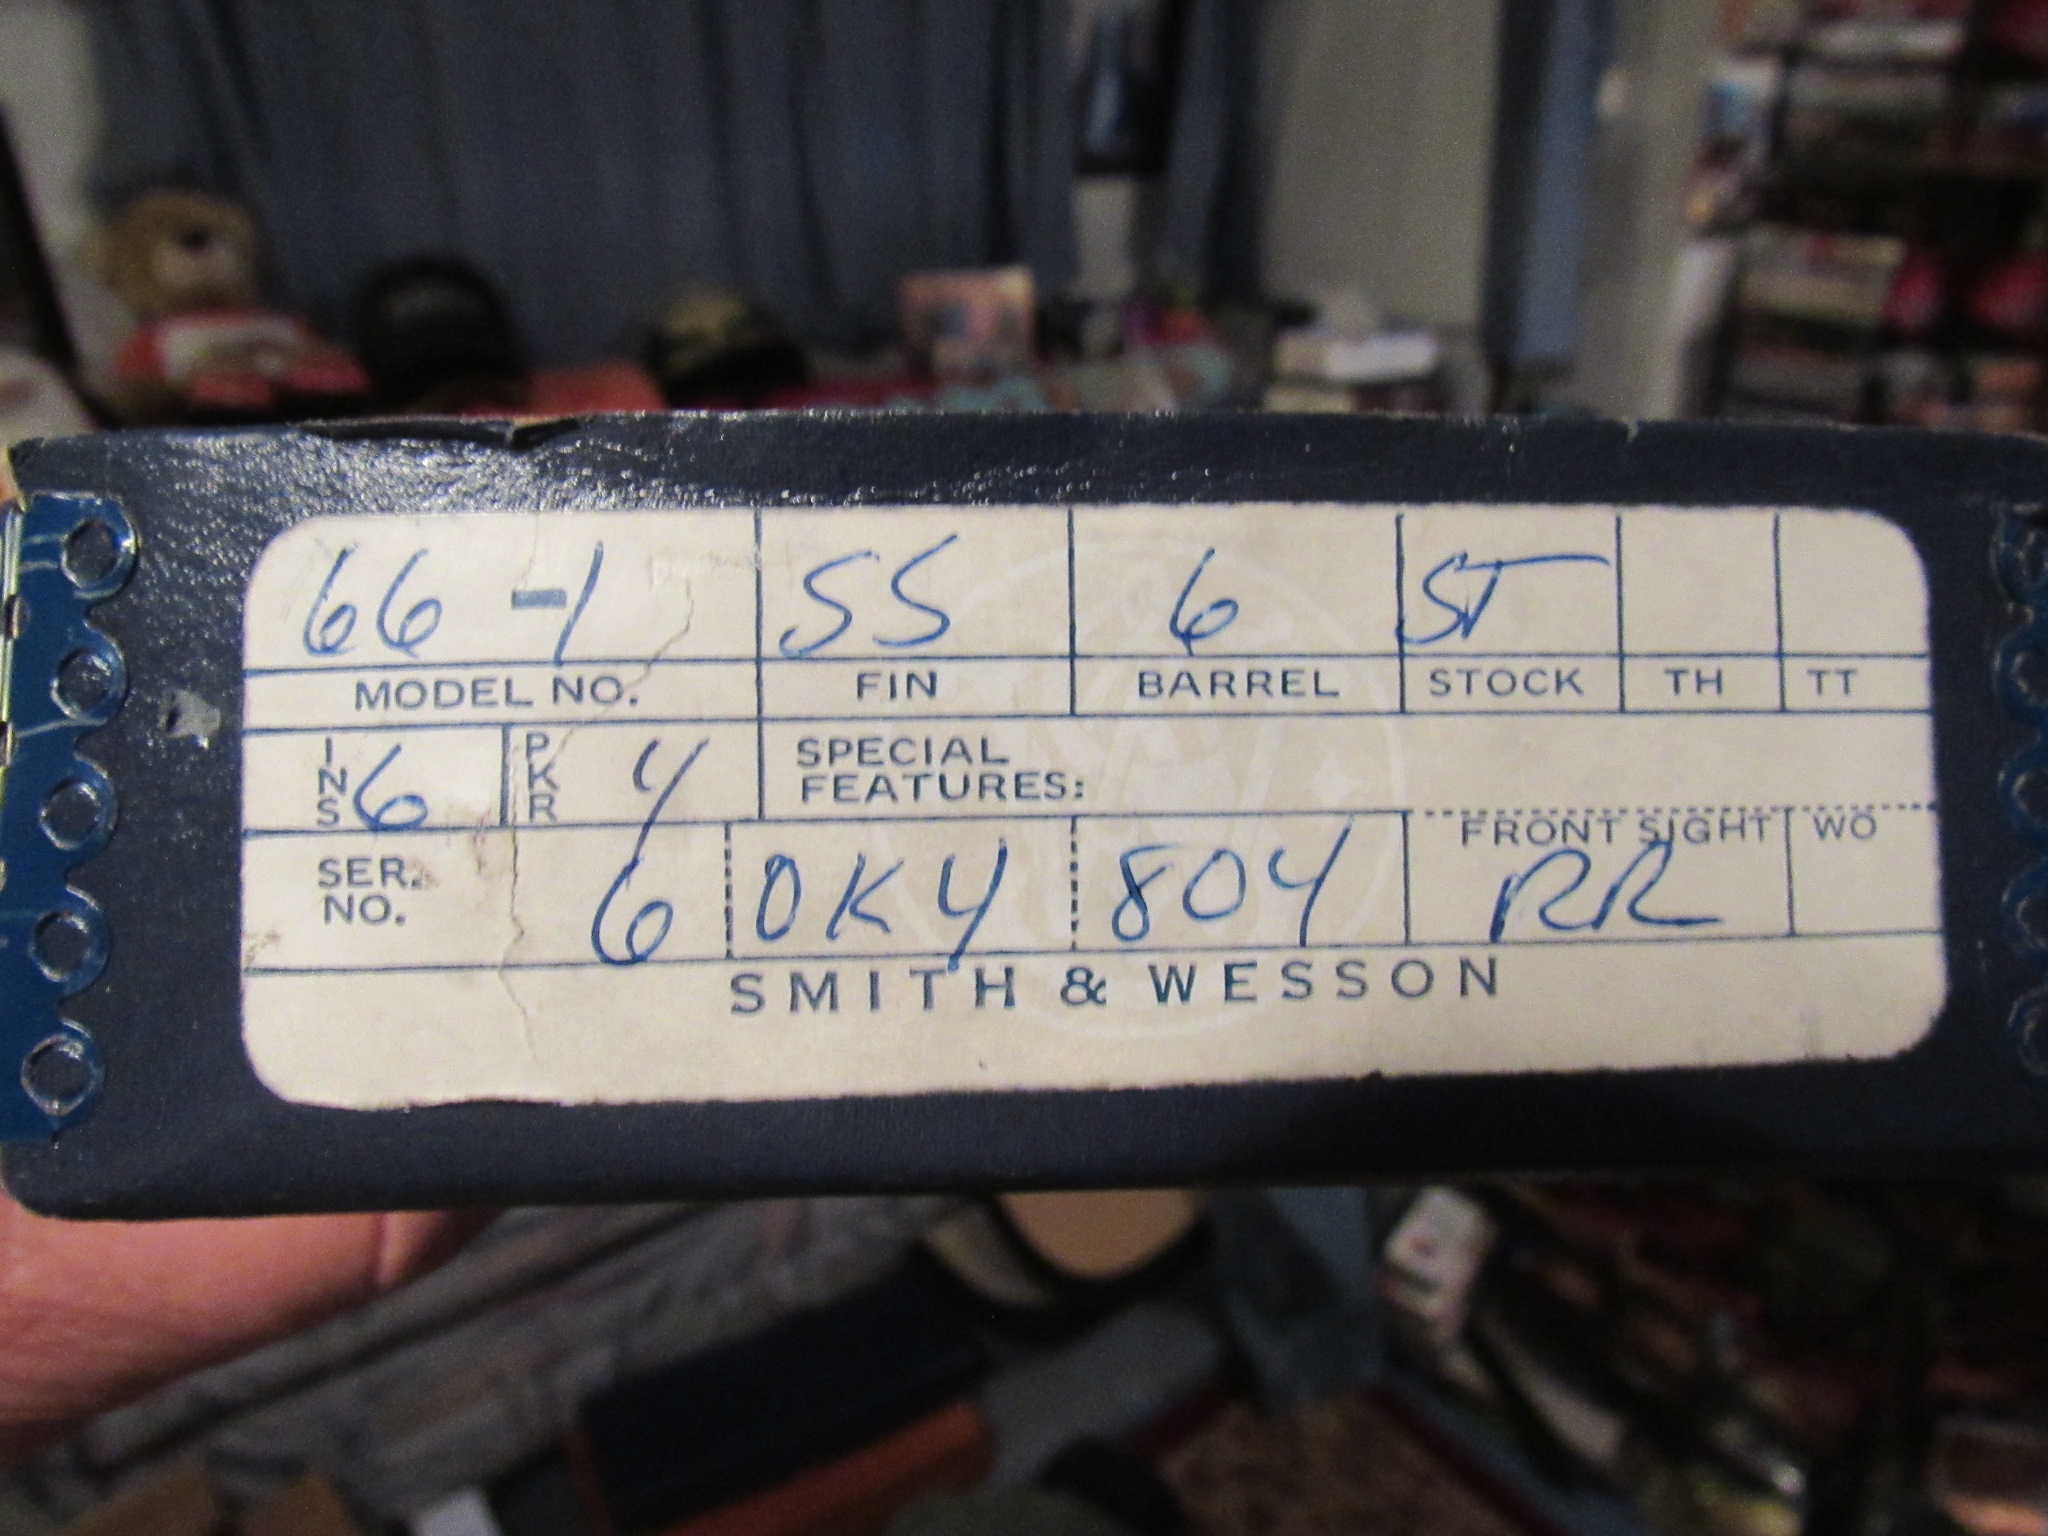 66-1 SS 6 ST
MODEL NO. FIN BARREL STOCK TH TT
INS 6 PKR 4 SPECIAL
FEATURES:
FRONT SIGHT WO
SER. NO. 6 0K4 804 RR
SMITH & WESSON